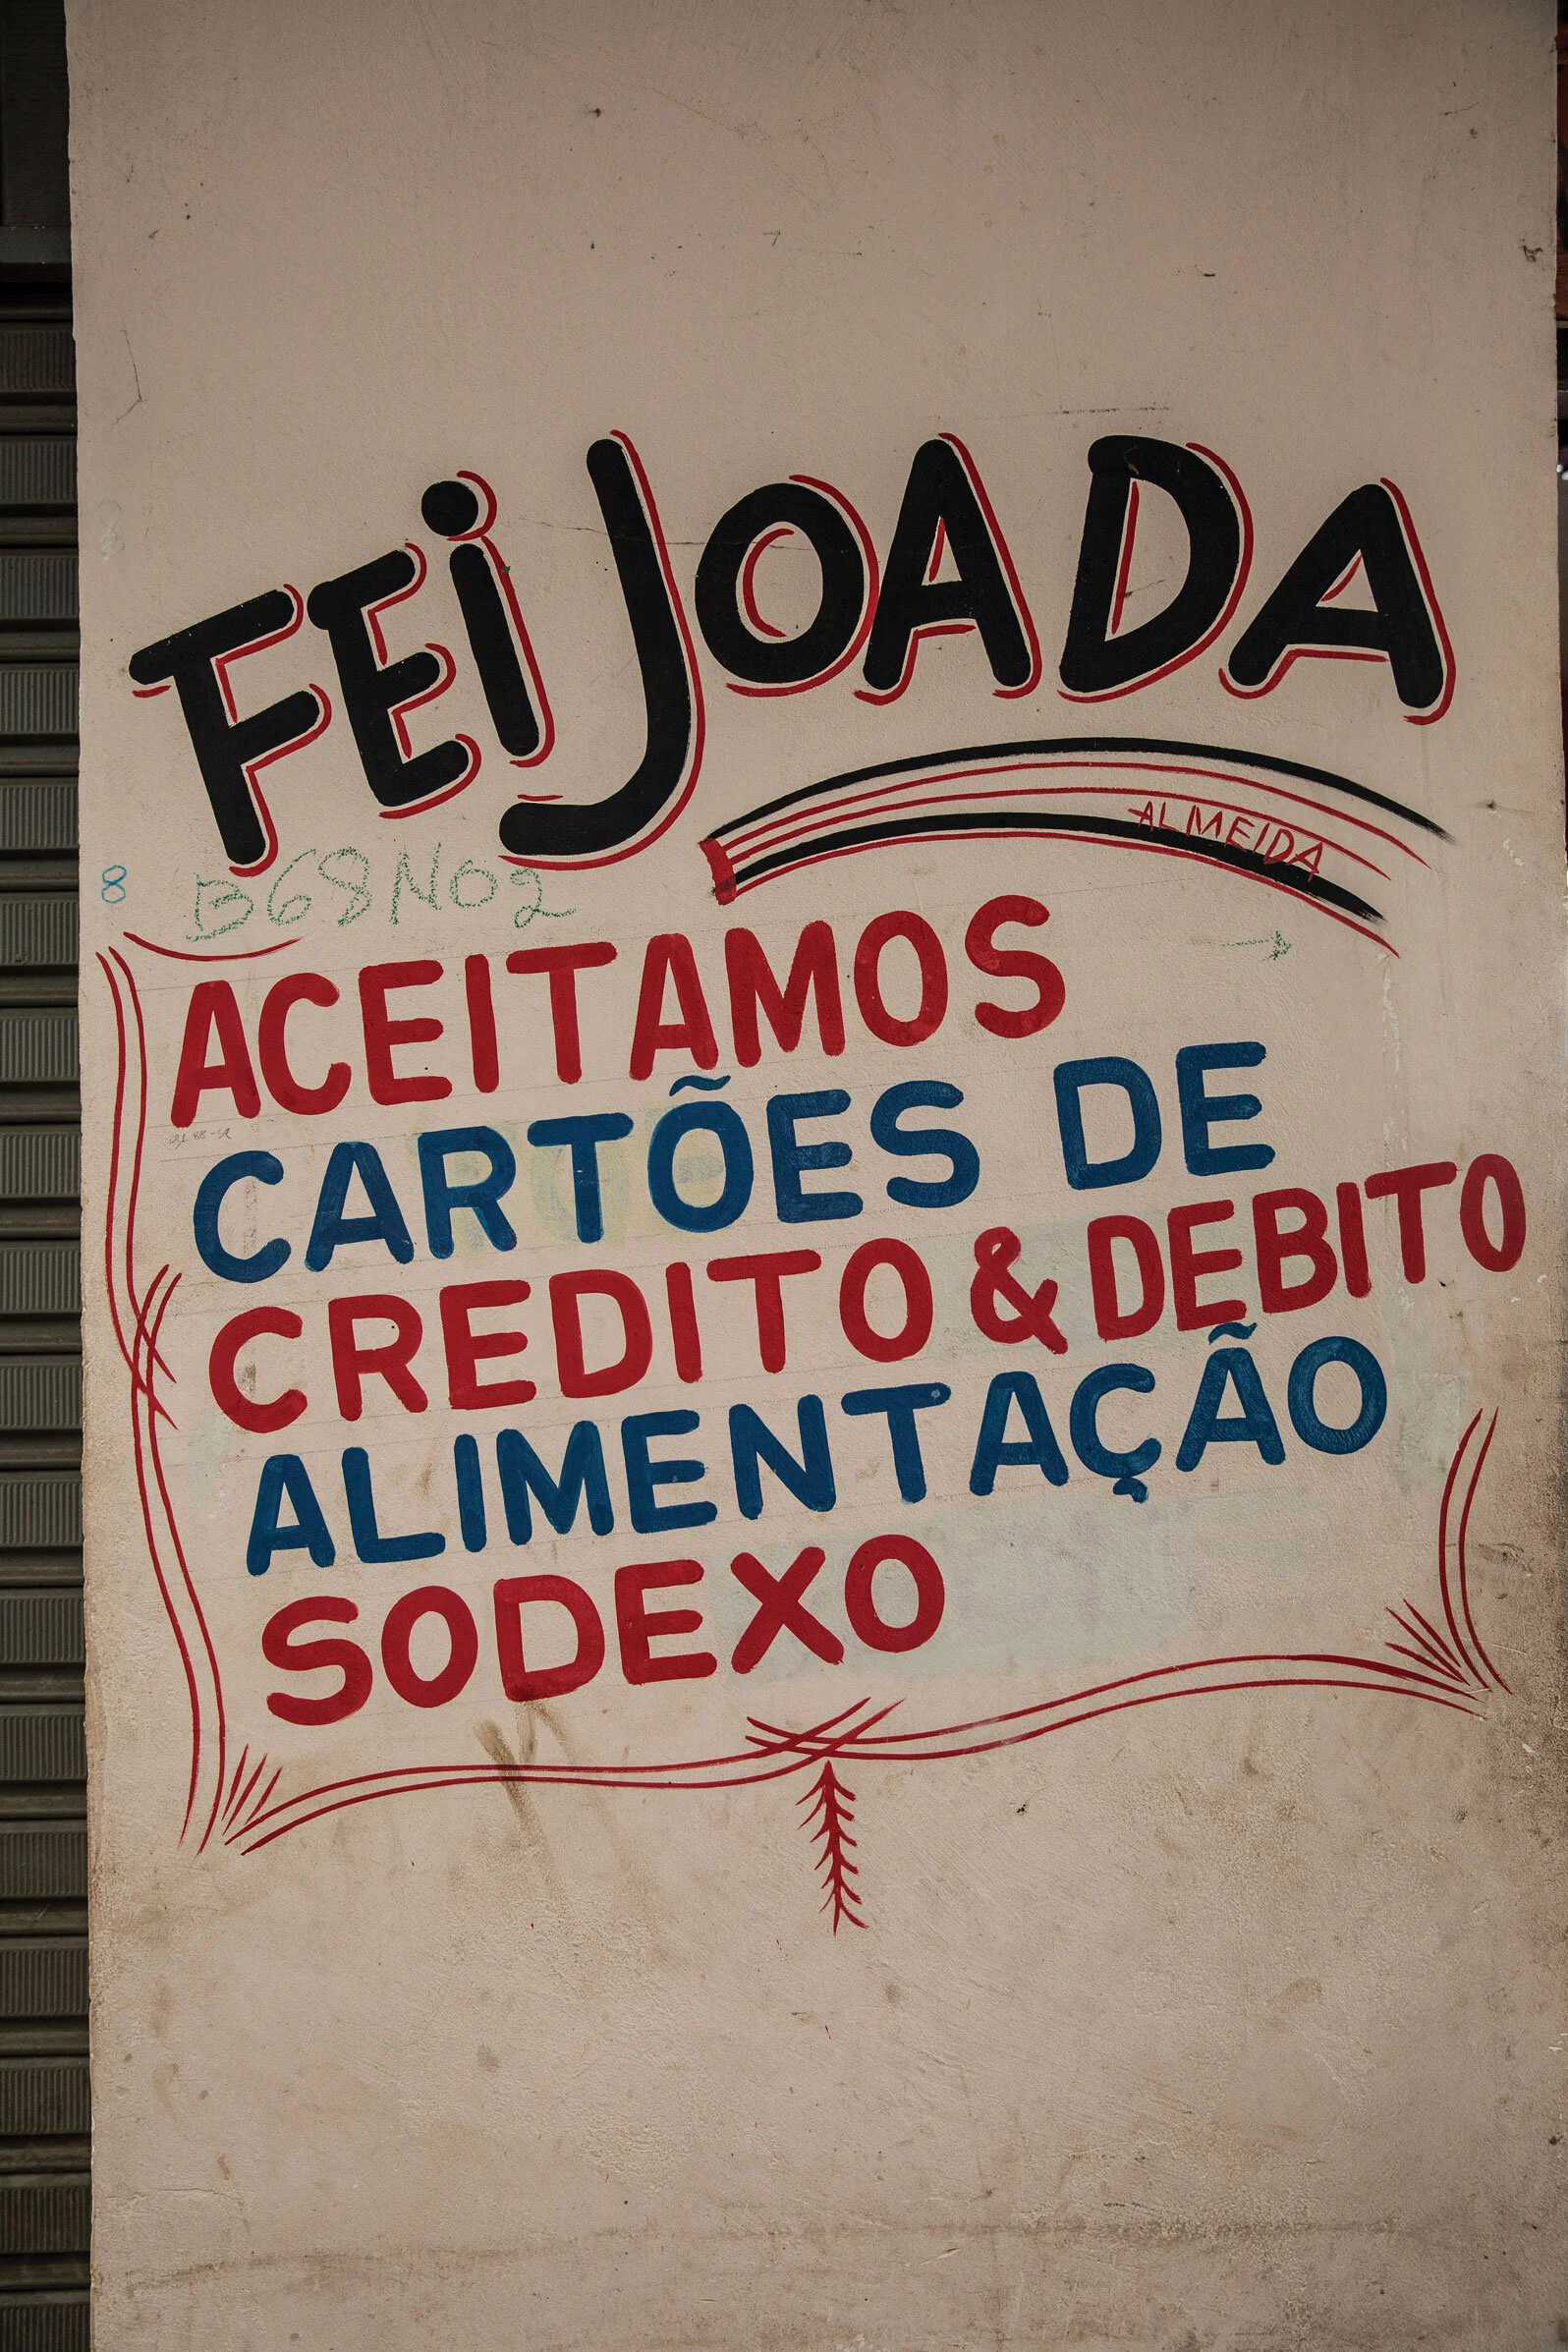 FEiJOADA
ALMEIDA
8
B68NO2
ACEITAMOS
CARTÕES DE
CREDITO & DEBITO
ALIMENTAÇÃO
SODEXO